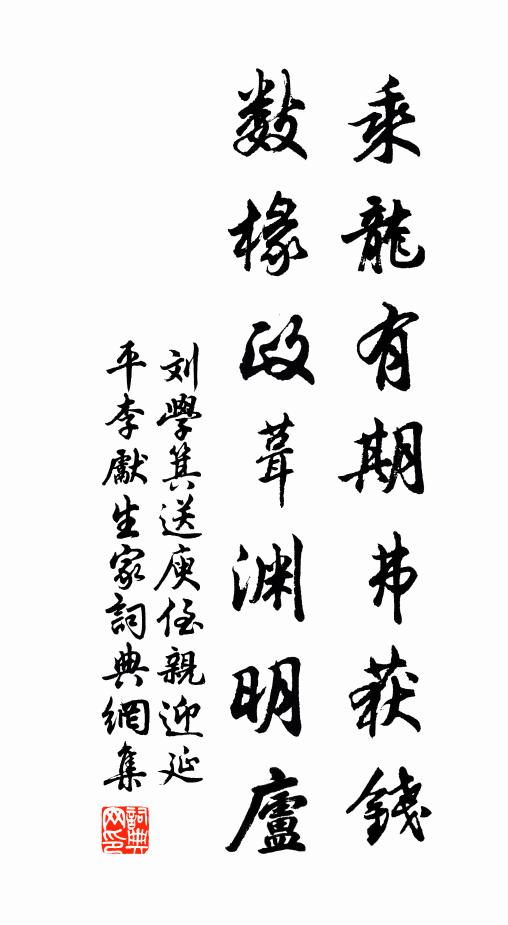 乘龍有期弗获錢
數椽政葺渊明廬
刘學箕送庾侄親迎延
平李獻生家詞典網集
詞典网印